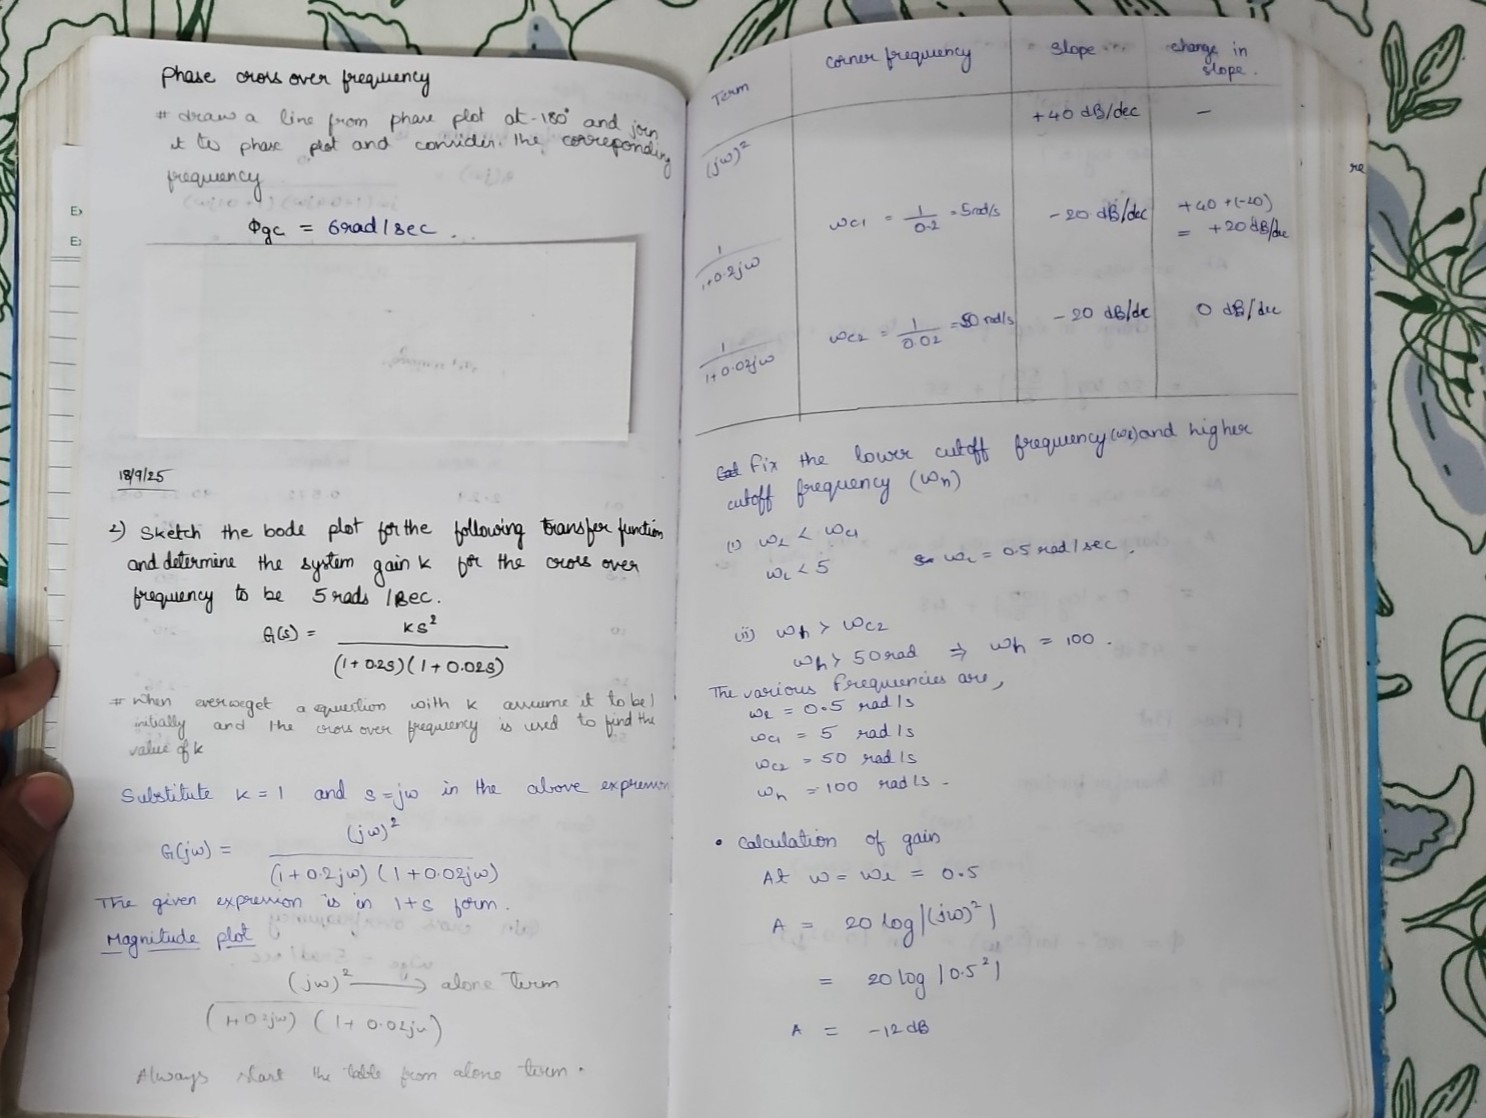 Phase cross over frequency
# draw a line from phase plot at -180° and join
it to phase plot and consider the correponding
frequency
Φgc = 6rad/sec.
18/9/25
2) Sketch the bode plot for the following transfer function
and determine the system gain k for the cross over
frequency to be 5 rads /sec.
G(s) = ks² / (1+0.2s)(1+0.02s)
# when ever we get a question with k assume it to be 1
initially and the cross over frequency is used to find the
value of k
Substitute k = 1 and s = jω in the above expression
G(jω) = (jω)² / (1+0.2jω)(1+0.02jω)
The given expression is in 1+s form.
Magnitude plot
(jω)² → alone term
(1+0.2jω) (1+0.02jω)
Always start the table from alone term.
Term | corner frequency | slope | change in slope.
(jω)² | | +40 dB/dec | –
1/1+0.2jω | ωc1 = 1/0.2 = 5rad/s | -20 dB/dec | +40 +(-20) = +20dB/dec
1/1+0.02jω | ωc2 = 1/0.02 = 50 rad/s | -20 dB/dc | 0 dB/dec
Fix the lower cutoff frequency (ωl) and higher
cutoff frequency (ωh)
(i) ωL < ωc1
ωL < 5 ωL = 0.5 rad/sec.
(ii) ωh > ωc2
ωh > 50rad ⇒ ωh = 100.
The various frequencies are,
ωl = 0.5 rad/s
ωc1 = 5 rad/s
ωc2 = 50 rad/s
ωh = 100 rad/s -
• Calculation of gain
At ω = ωl = 0.5
A = 20 log|(jω)²|
= 20 log |0.5²|
A = -12 dB